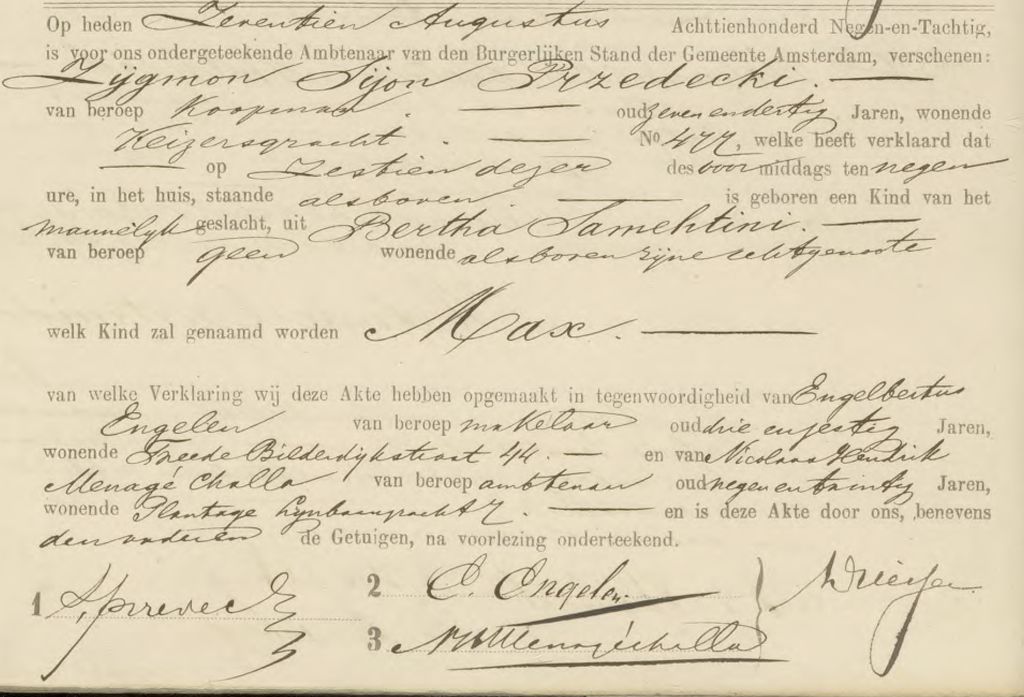 Op heden Zeventien Augustus Achttienhonderd Negen-en-Tachtig,
is voor ons ondergeteekende Ambtenaar van den Burgerlijken Stand der Gemeente Amsterdam, verschenen:
Zijgmon Sijon Przedecki.
van beroep Koopman. oud zeven en dertig Jaren, wonende
Keizersgracht. No. 477, welke heeft verklaard dat
op Zestien dezer des voormiddags ten negen
ure, in het huis, staande alsboven. is geboren een Kind van het
mannelijk geslacht, uit Bertha Samehtini.
van beroep geen wonende alsboven zijne echtgenoote
welk Kind zal genaamd worden Max.
van welke Verklaring wij deze Akte hebben opgemaakt in tegenwoordigheid van Engelbertus
Engelen van beroep makelaar oud drie en sestig Jaren,
wonende Tweede Bilderdijkstraat 44. en van Nicolaas Hendrik
Menagé Challa van beroep ambtenaar oud negen en twintig Jaren,
wonende Plantage Lijnbaangracht 7. en is deze Akte door ons, benevens
den vader en de Getuigen, na voorlezing onderteekend.
1
2 E. Engelen.
3 NHMenagéchalla